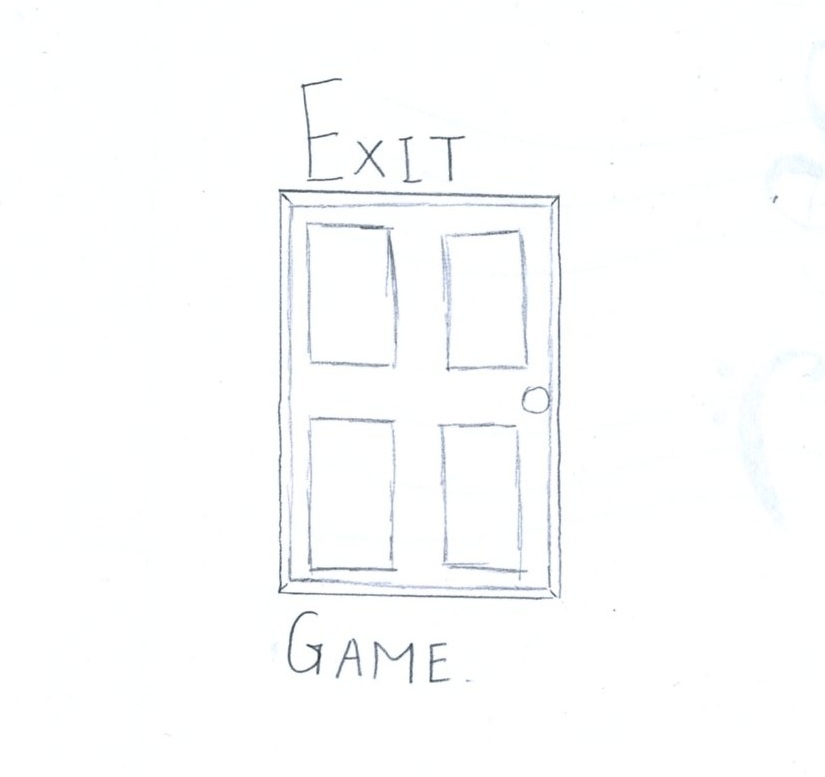 EXIT
GAME.